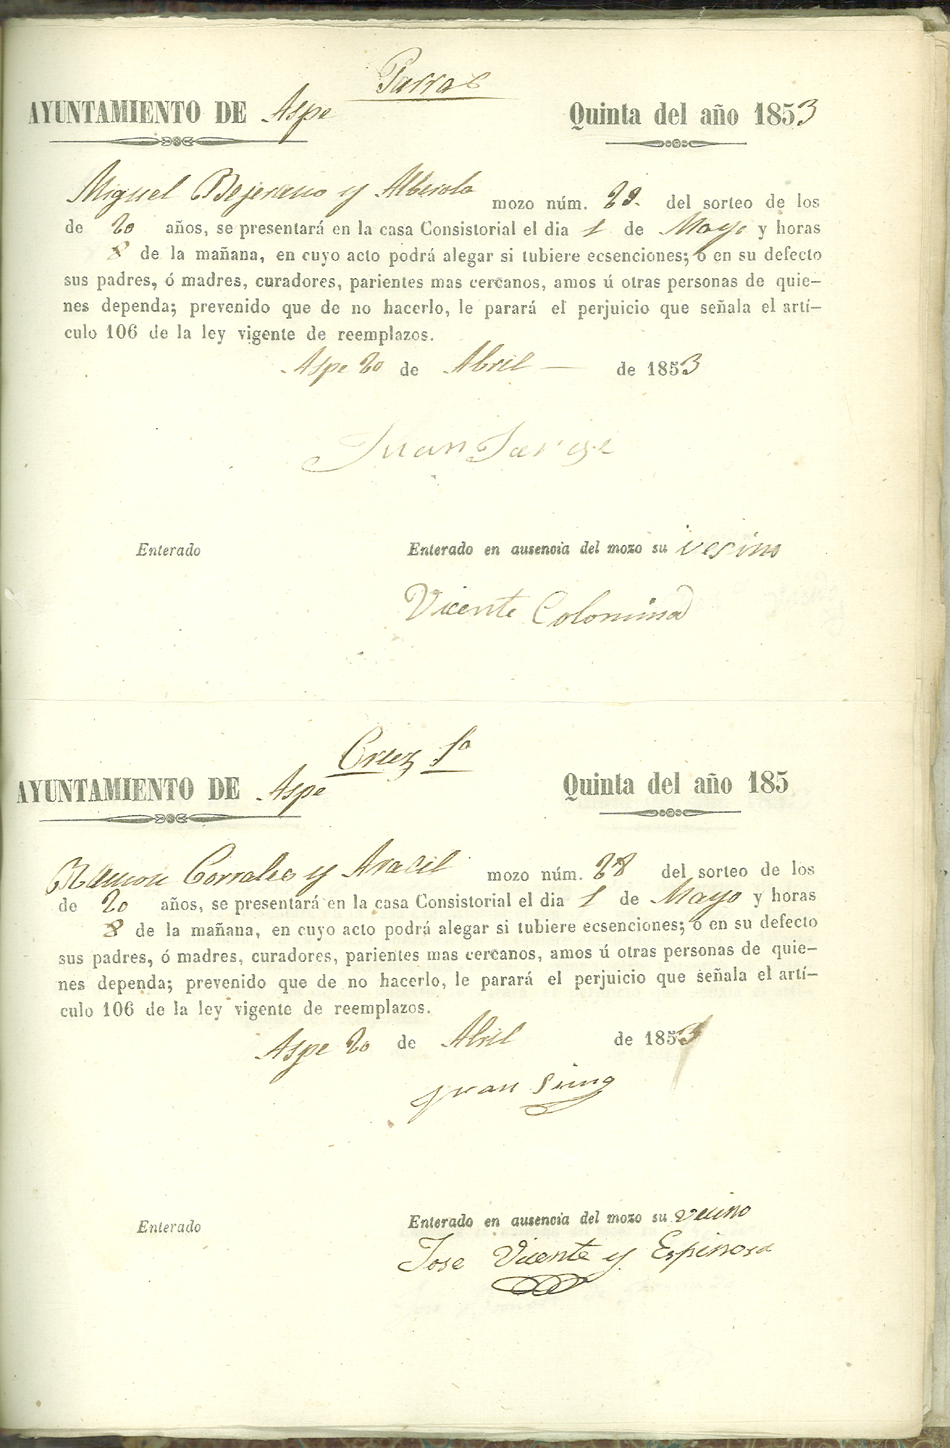 Parras
AYUNTAMIENTO DE Aspe Quinta del año 1853
Miguel Bejerano y Alberola mozo núm. 29. del sorteo de los
de 20 años, se presentará en la casa Consistorial el dia 1 de Mayo y horas
8 de la mañana, en cuyo acto podrá alegar si tubiere ecsenciones; ó en su defecto
sus padres, ó madres, curadores, parientes mas cercanos, amos ú otras personas de quie–
nes dependa; prevenido que de no hacerlo, le parará el perjuicio que señala el artí–
culo 106 de la ley vigente de reemplazos.
Aspe 20 de Abril — de 1853
Juan
Enterado Enterado en ausencia del mozo su vesino
Vicente Colomina
Cruz 1ª
AYUNTAMIENTO DE Aspe Quinta del año 185
Ramon Corrales y Aracil mozo núm. 28 del sorteo de los
de 20 años, se presentará en la casa Consistorial el dia 1 de Mayo y horas
8 de la mañana, en cuyo acto podrá alegar si tubiere ecsenciones; ó en su defecto
sus padres, ó madres, curadores, parientes mas cercanos, amos ú otras personas de quie–
nes dependa; prevenido que de no hacerlo, le parará el perjuicio que señala el artí–
culo 106 de la ley vigente de reemplazos.
Aspe 20 de Abril de 1853
Juan
Enterado Enterado en ausencia del mozo su vecino
Jose Vicente y Espinosa